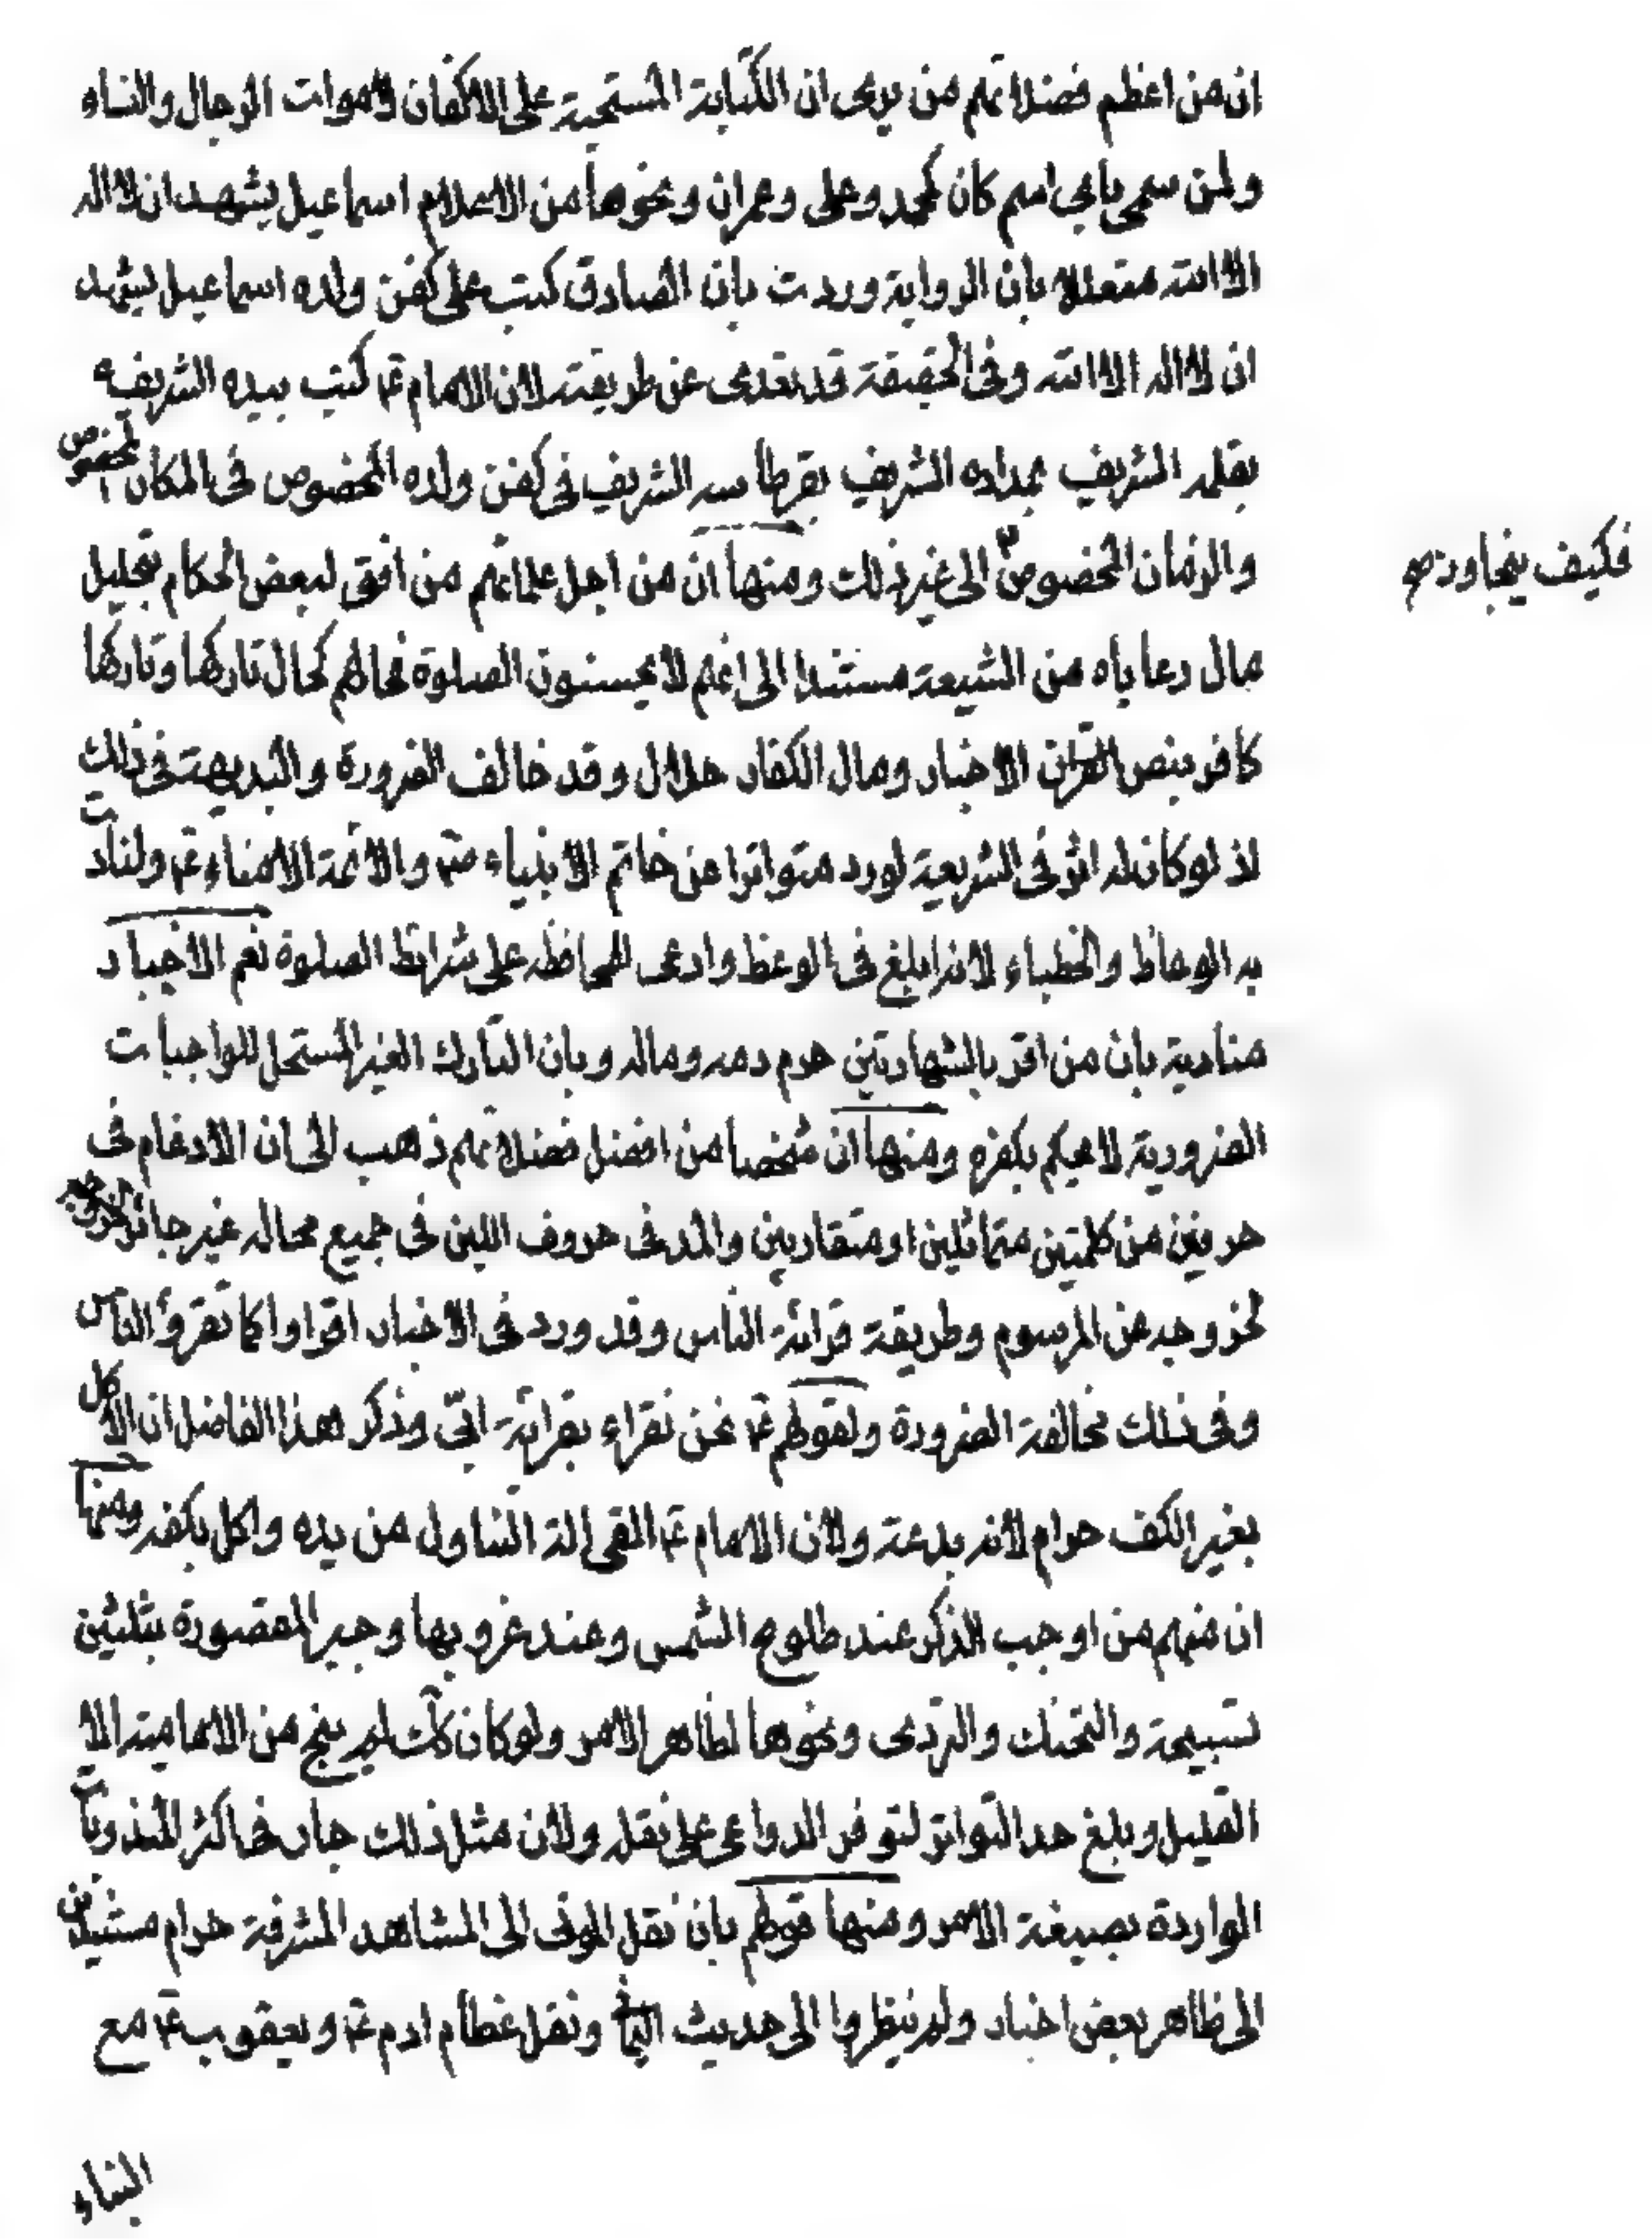 ان من اعظم فضلائهم من يرى ان الكتابة المستحبة على الاكفان لاموات الرجال والنساء
ولمن سمى باى اسم كان كمحمد وعلى وعمران ونحوها من الاعلام اسماعيل يشهد ان لا اله
الا الله متعللا بان الرواية وردت بان الصادق كتب على كفن ولده اسماعيل يشهد
ان لا اله الا الله وفى الحقيقة قد تعدى عن طريقته لان الامام ع كتب بيده الشريفه
بقلمه الشريف بمداده الشريف بقرطاسه الشريف فى كفن ولده المخصوص فى المكان المخصوص
والزمان المخصوص الى غير ذلك ومنها ان من اجل علمائهم من افتى لبعض الحكام بتحليل
فكيف يتجاوز صح
مال رعاياه من الشيعة مستندا الى انهم لا يحسنون الصلوة فحالهم كحال تاركها وتاركها
كافر بنص القران الاخبار ومال الكفار حلال وقد خالف الضرورة والبديهة فى ذلك
اذ لو كان له اثر فى الشريعة لورد متواترا عن خاتم الانبياء ص والائمة الامناء ع ولنادت
به الوعاظ والخطباء لانه ابلغ فى الوعظ وادعى للمحافظه على شرائط الصلوة نعم الاخبار
منادية بان من اقر بالشهادتين حرم دمه وماله وبان التارك الغير المستحل للواجبات
الضرورية لا يحكم بكفره ومنها ان شخصا من افضل فضلائهم ذهب الى ان الادغام فى
حرفين من كلمتين متماثلين او متقاربين والمد فى حروف اللين فى جميع محاله غير جائز
لخروجه عن المرسوم وطريقة قرائة الناس وقد ورد فى الاخبار اقراوا كما تقرؤ الناس
وفى ذلك مخالفة الضرورة ولقولهم ع نحن نقراء بقرائة ابىّ وذكر هذا الفاضل ان الاكل
بغير الكف حرام لانه بدعة ولان الامام ع القى الة التناول من يده واكل بكفه ومنها
ان منهم من اوجب الذكر عند طلوع الشمس وعند غروبها وجبر المقصورة بثلثين
تسبيحة والتحنك والتردى ونحوها لظاهر الامر ولو كان كك لم ينج من الامامية الا
القليل وبلغ حد التواتر لتوفر الدواعى على نقله ولان مثل ذلك جار فى اكثر المندوبات
الواردة بصيغة الامر ومنها قولهم بان نقل الموتى الى المشاهد المشرفة حرام مستندين
الى ظاهر بعض اخبار ولم ينظروا الى حديث ونقل عظام ادم ع ويعقوب ع مع
البناء